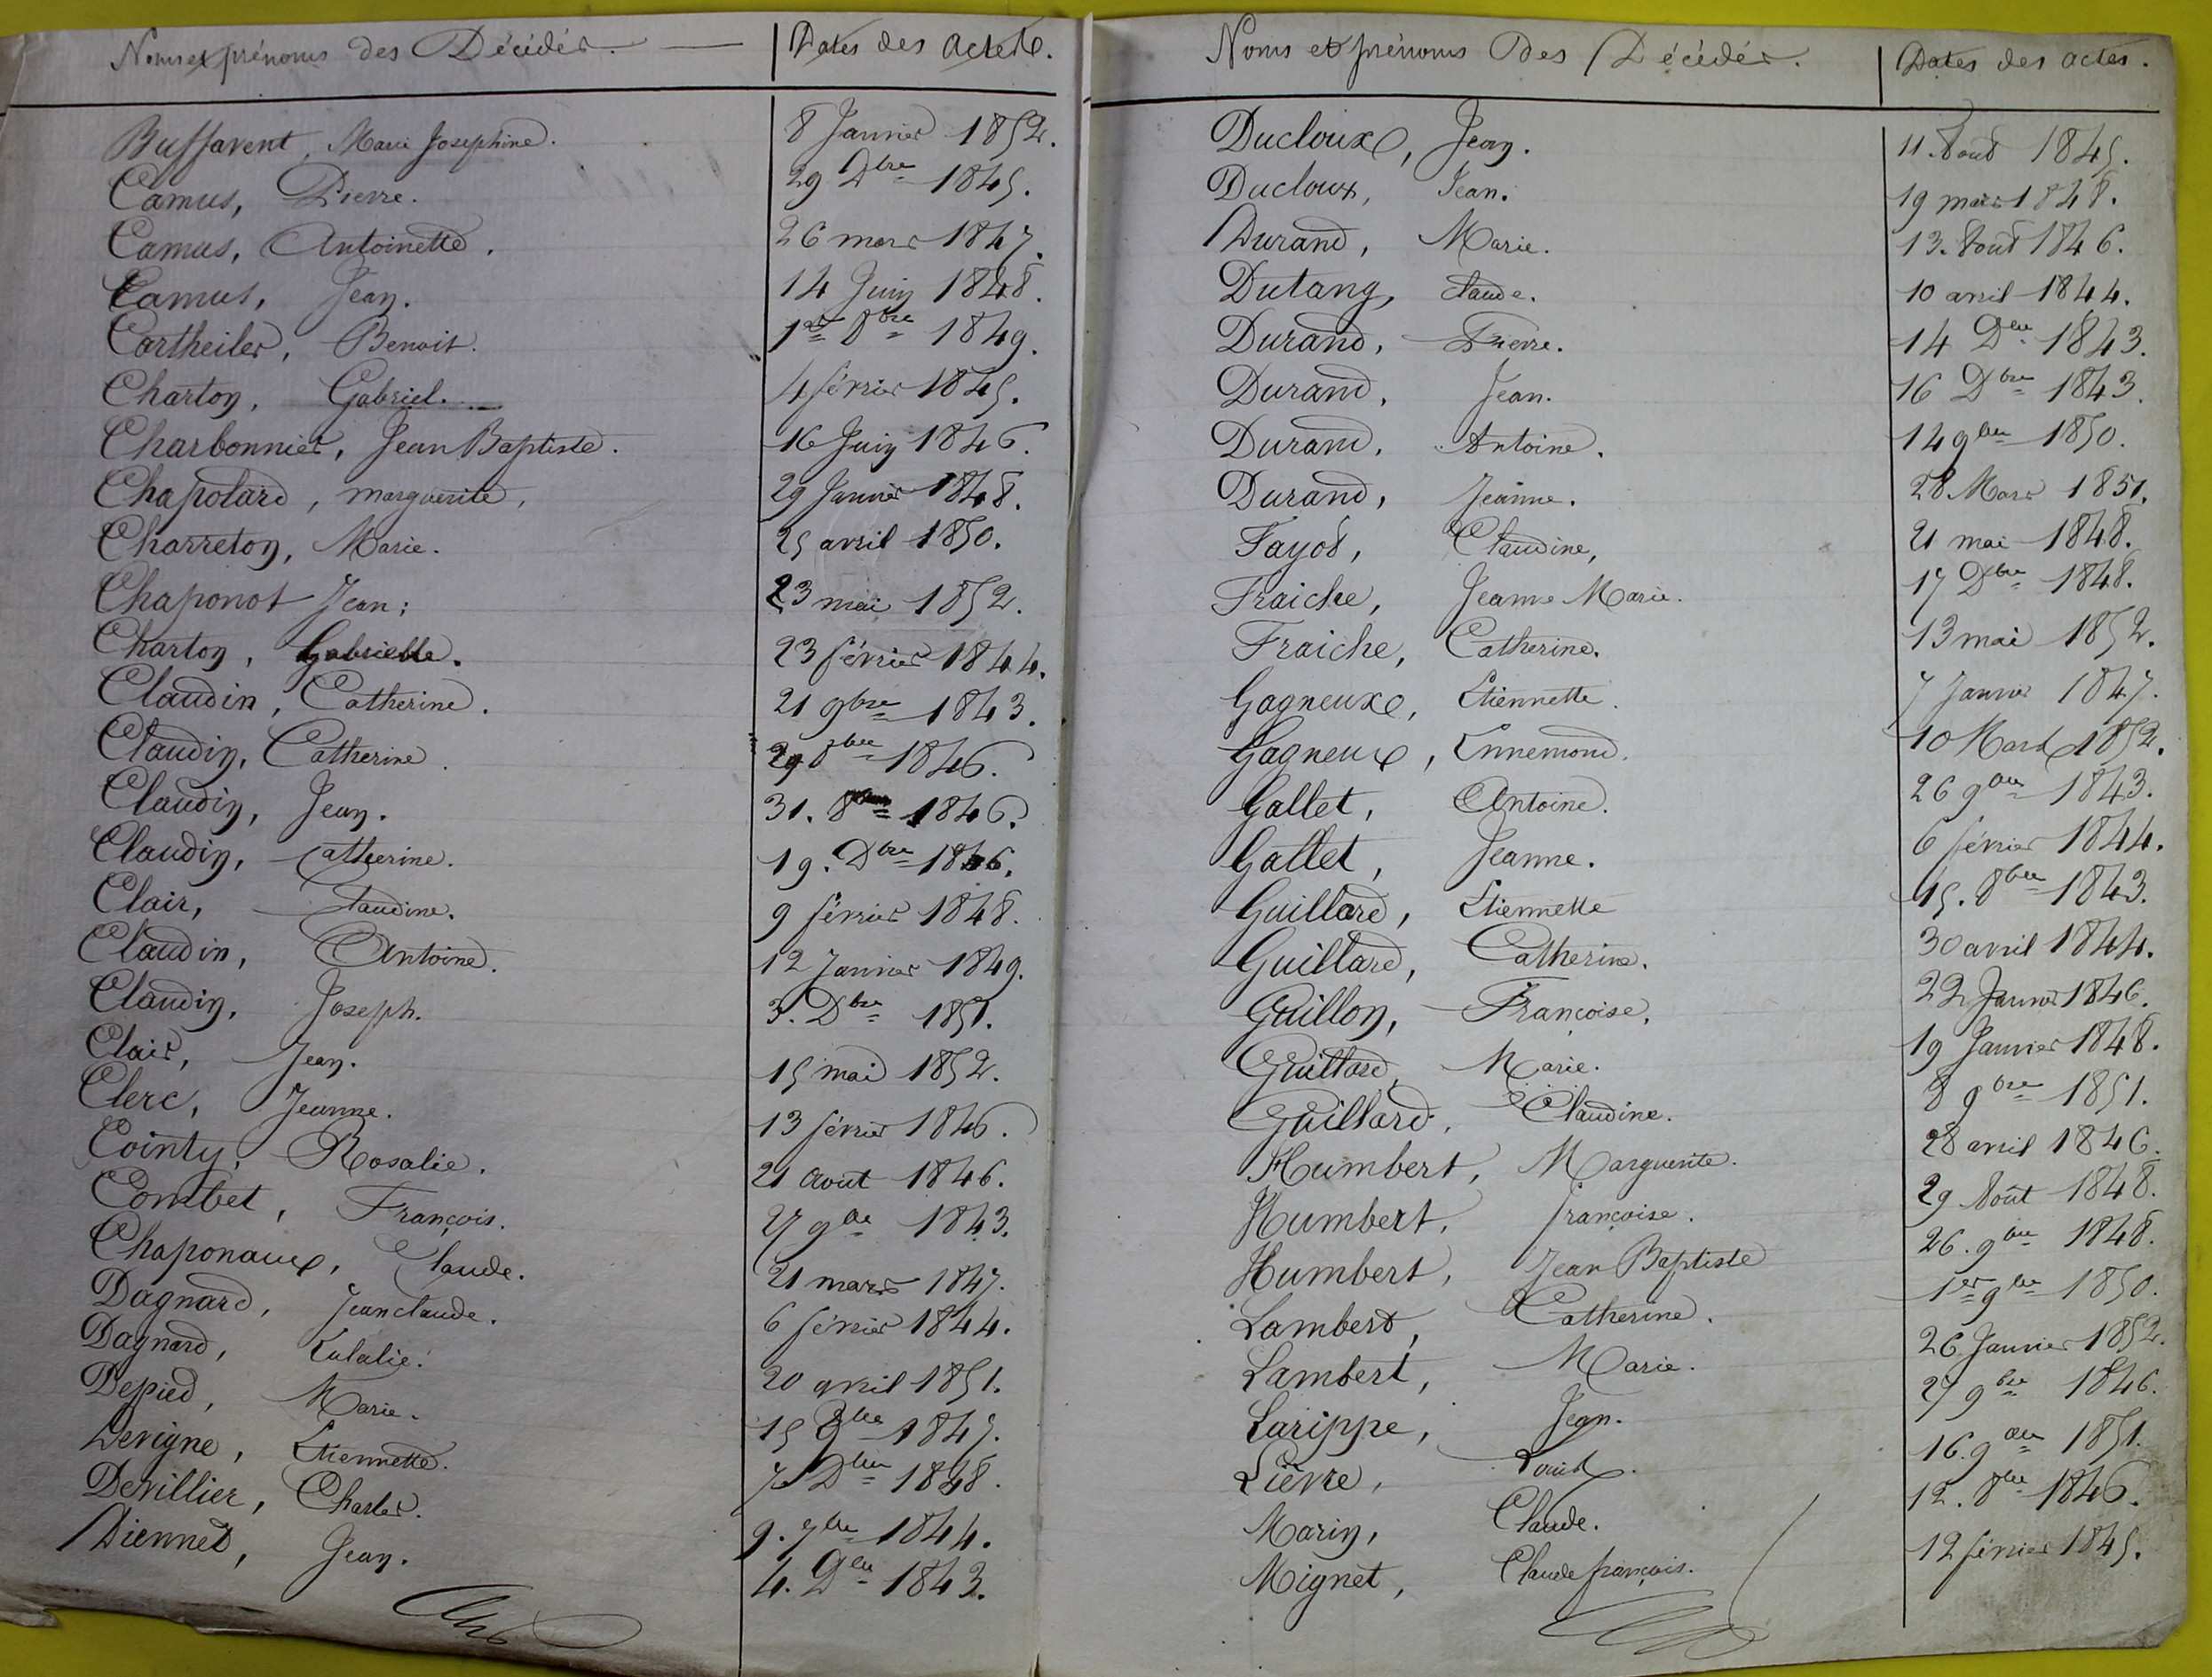 Noms et prénoms des Décédés. — Dates des actes.
Buffavent, Marie Josephine. 8 Janvier 1852.
Camus, Pierre. 29 Dbre 1845.
Camus, Antoinette. 26 mars 1847.
Camus, Jean. 14 Juin 1848.
Cartheiler, Benoit. 1er 8bre 1849.
Charton, Gabriel. 4 février 1845.
Charbonnier, Jean Baptiste. 16 Juin 1846.
Chapolard, marguerite, 29 Janvier 1848.
Charreton, Marie. 25 avril 1850.
Chaponot Jean; 23 mai 1852.
Charton, Gabrielle. 23 février 1844.
Claudin, Catherine. 21 9bre 1843.
Claudin, Catherine. 29 8bre 1846.
Claudin, Jean. 31. 8bre 1846.
Claudin, Catherine. 19. Dbre 1846.
Clair, Claudine. 9 février 1848.
Claudin, Antoine. 12 Janvier 1849.
Claudin, Joseph. 3. Dbre 1851.
Clair, Jean. 15 mai 1852.
Clerc, Jeanne. 13 février 1846.
Cointy, Rosalie. 21 Aout 1846.
Combet, François. 27 9bre 1843.
Chaponaux, Claude. 21 mars 1847.
Dagnard, Jean claude. 6 février 1844.
Dagnard, Eulalie. 20 avril 1851.
Depied, Marie. 15 1845.
Devigne, Etiennette. 7 Dbre 1848.
Devillier, Charles. 9. 7bre 1844.
Diennet, Jean. 4. Dbre 1843.
Noms et prénoms des Décédés. Dates des actes.
Ducloux, Jean. 11. Aout 1845.
Ducloux, Jean. 19 mars 1848.
Durand, Marie. 13. Aout 1846.
Dutang, Claude. 10 avril 1844.
Durand, Pierre. 14 Dbre 1843.
Durand, Jean. 16 Dbre 1843.
Durand, Antoine. 14 9bre 1850.
Durand, Jeanne. 28 Mars 1851.
Fayot, Claudine, 21 mai 1848.
Fraiche, Jeanne Marie. 17 Dbre 1848.
Fraiche, Catherine. 13 mai 1852.
Gagneux, Etiennette. 7 Janvier 1847.
Gagneux, Ennemond. 10 Mars 1852.
Gallet, Antoine. 26 9bre 1843.
Gallet, Jeanne. 6 février 1844.
Guillard, Etiennette 15. 8bre 1843.
Guillard, Catherine. 30 avril 1844.
Guillon, Françoise. 22 Janvier 1846.
Guillard, Marie. 19 Janvier 1848.
Guillard, Claudine. 8 9bre 1851.
Humbert, Marguerite. 28 avril 1846.
Humbert, françoise. 29 Aout 1848.
Humbert, Jean Baptiste 26. 9bre 1848.
Lambert, Catherine. 1er 9bre 1850.
Lambert, Marie. 26 Janvier 1852.
Larippe, Jean. 27 9bre 1846.
Lièvre, Louis. 16. 9bre 1851.
Marin, Claude. 12. 8bre 1846.
Mignet, Claude françois. 12 février 1845.